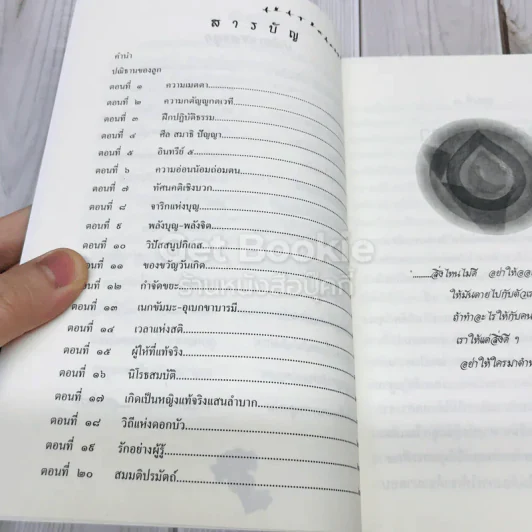 สารบัญ
คำนำ
ปณิธานของลูก
ตอนที่ ๑ ความเมตตา
ตอนที่ ๒ ความกตัญญูกตเวที
ตอนที่ ๓ ฝึกปฏิบัติธรรม
ตอนที่ ๔ ศีล สมาธิ ปัญญา
ตอนที่ ๕ อินทรีย์ ๕
ตอนที่ ๖ ความอ่อนน้อมถ่อมตน
ตอนที่ ๗ ทัศนคติเชิงบวก
ตอนที่ ๘ จาริกแห่งบุญ
ตอนที่ ๙ พลังบุญ-พลังจิต
ตอนที่ ๑๐ วิปัสสนูปกิเลส
ตอนที่ ๑๑ ของขวัญวันเกิด
ตอนที่ ๑๒ กำจัดขยะ
ตอนที่ ๑๓ เนกขัมมะ-อุเบกขาบารมี
ตอนที่ ๑๔ เวลาแห่งสติ
ตอนที่ ๑๕ ผู้ให้ที่แท้จริง
ตอนที่ ๑๖ นิโรธสมบัติ
ตอนที่ ๑๗ เกิดเป็นหญิงแท้จริงแสนลำบาก
ตอนที่ ๑๘ วิถีแห่งดอกบัว
ตอนที่ ๑๙ รักอย่างผู้รู้
ตอนที่ ๒๐ สมมติปรมัตถ์
Get Bookie
ร้านหนังสือบุ๊คกี้
"........สิ่งไหนไม่ดี อย่าให้ออ
ให้มันตายไปกับตัวเ
ถ้าทำอะไรให้กับคน
เราให้แต่สิ่งดี ๆ
อย่าให้ใครมาตำห